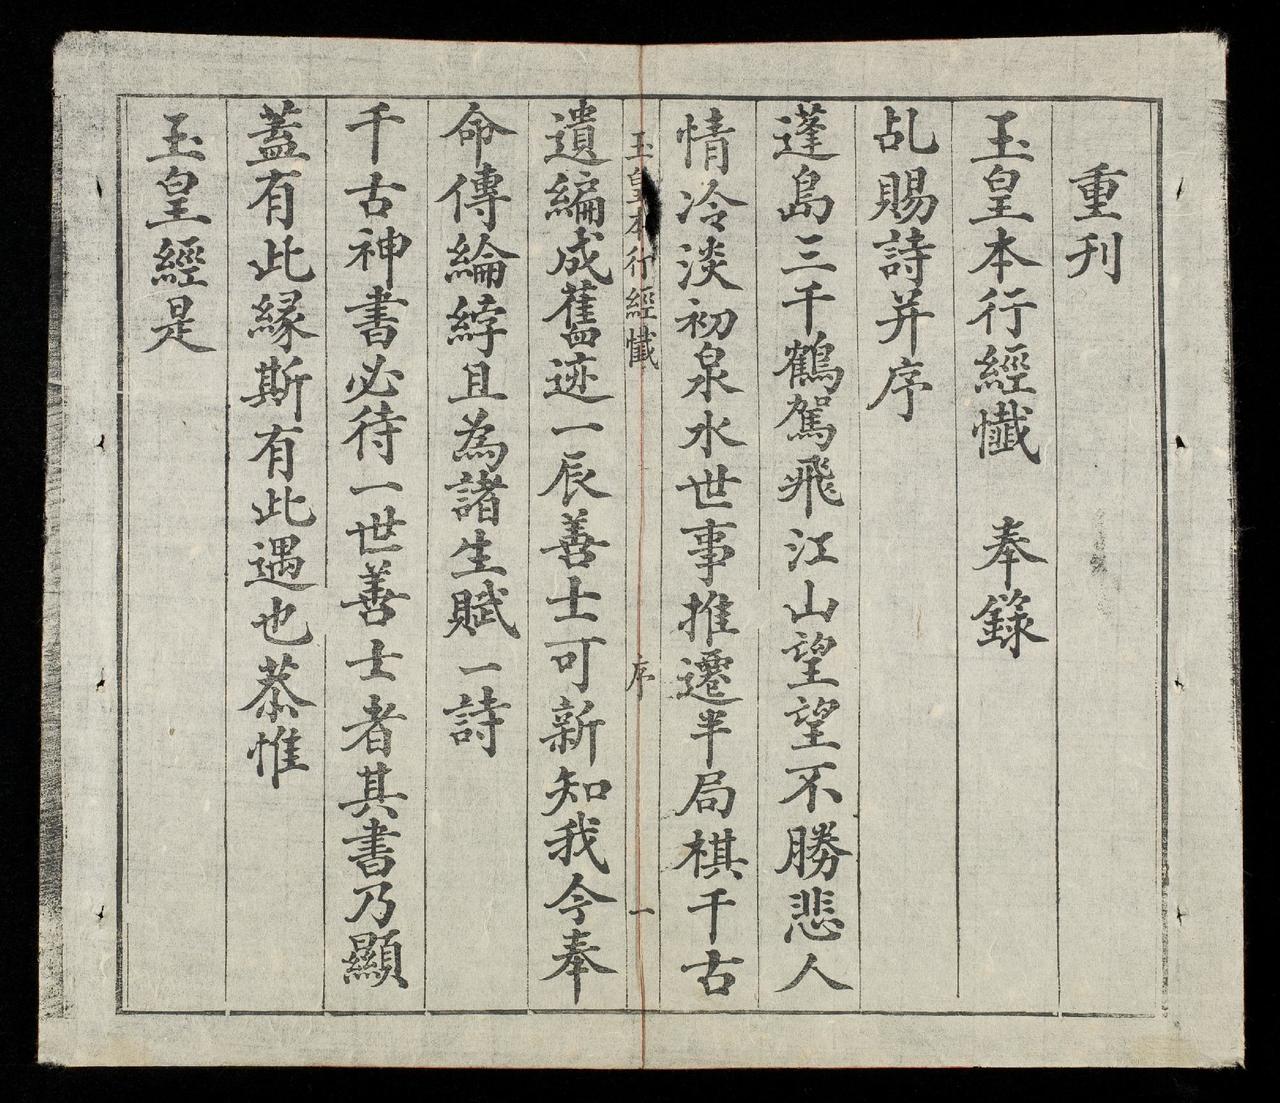 重刊
玉皇本行經懺　奉籙
乩賜詩并序
蓬島三千鶴駕飛江山望望不勝悲人
情冷淡初泉水世事推遷半局棋千古
玉皇本行經懺　序　一
遺編成舊迹一辰善士可新知我今奉
命傳綸綍且為諸生賦一詩
千古神書必待一世善士者其書乃顯
蓋有此緣斯有此遇也恭惟
玉皇經是